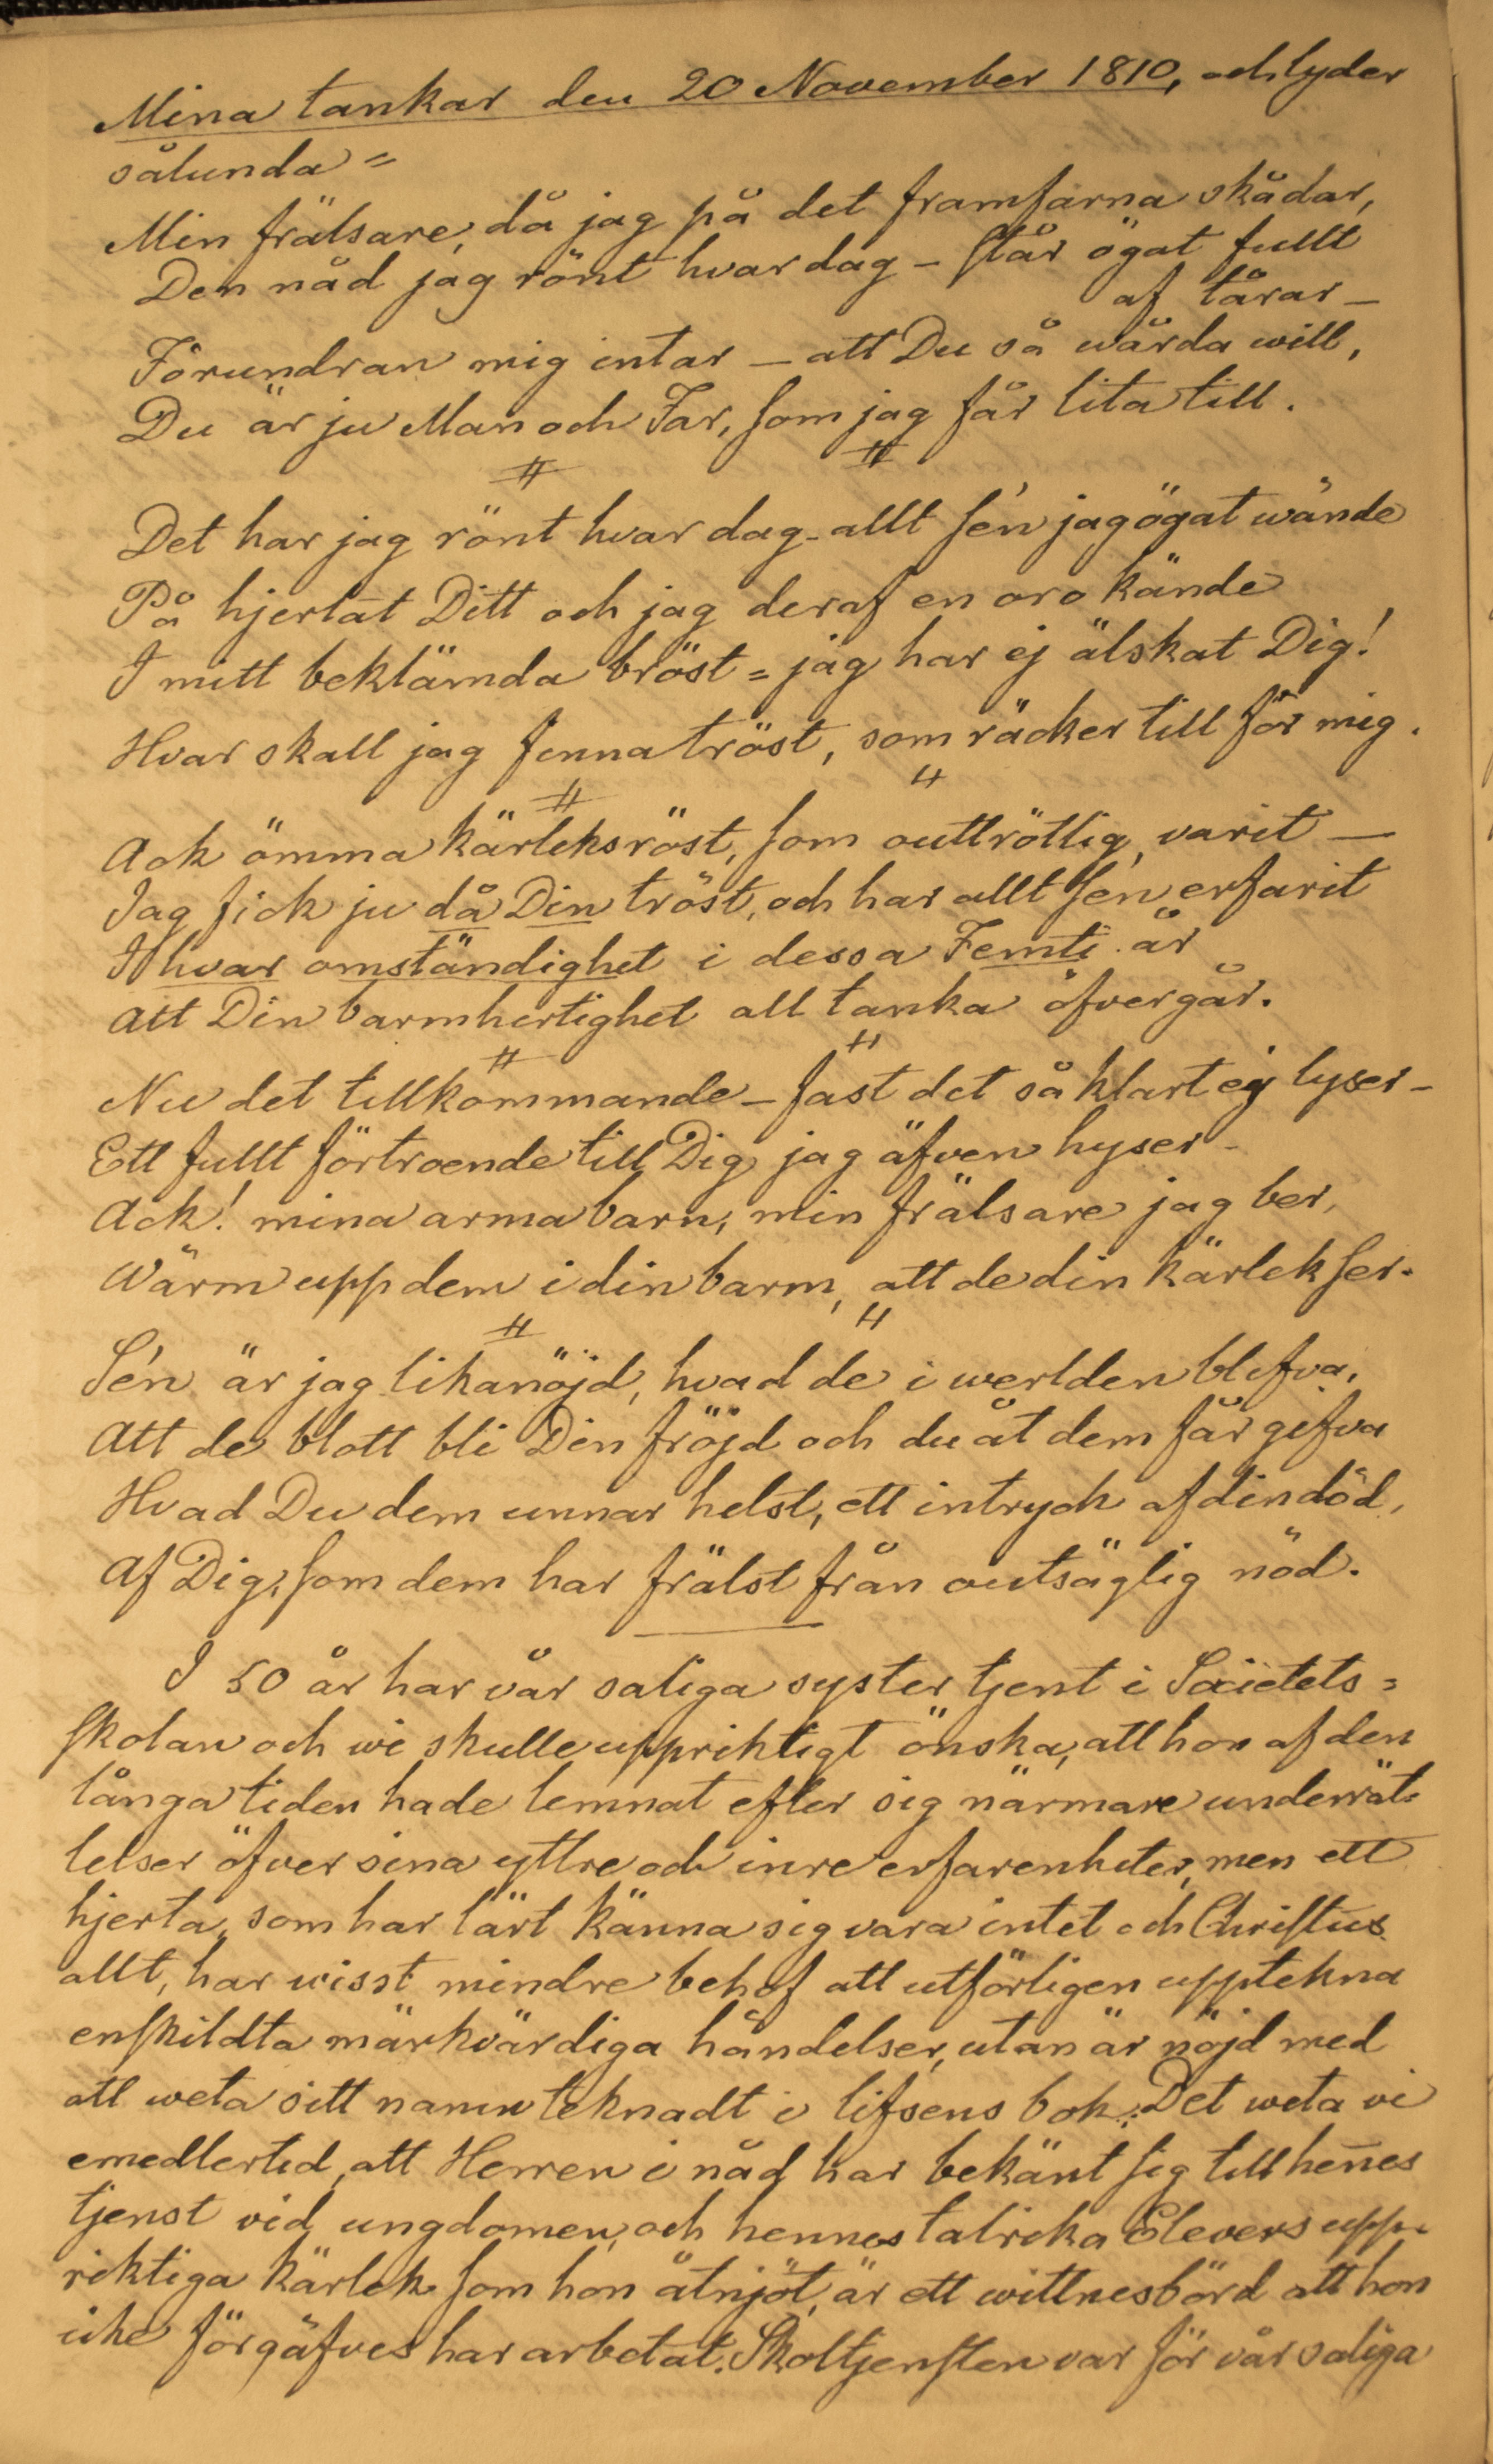 Mina tankar den 20 November 1810, och lyder
sålunda =
Min frälsare, då jag på det framfarna skådar,
Den nåd jag rönt hvar dag – står ögat fullt
af tårar –
Förundran mig intar – att Du så wårda will,
Du är ju Man och Far, som jag får lita till.
# #
Det har jag rönt hvar dag – allt sén jag ögat wände
På hjertat Ditt och jag deraf en oro kände
I mitt beklämda bröst = jag har ej älskat Dig!
Hvar skall jag finna tröst, som räcker till för mig.
# "
Ack ömma kärleksröst, som outtröttlig varit –
Jag fick ju då Din tröst, och har allt sén erfarit
I hvar omständighet i dessa Femti år
Att Din barmhertighet all tanka öfvergår.
# "
Nu det tillkommande – fast det så klart ej lyser –
Ett fullt förtroende till Dig jag äfven hyser –
Ack! mina arma barn, min frälsare jag ber,
Wärm upp dem i din barm, att de din kärlek ser.
# "
Sén är jag lika nöjd, hvad de i werlden blifva,
Att de blott bli Din fröjd och du åt dem får gifva
Hvad Du dem unnar helst, ett intryck af din död,
Af Dig, som dem har frälst från outsäglig nöd.
I 50 år har vår saliga syster tjent i Societets=
skolan och wi skulle uppriktigt önska, att hon af den
långa tiden hade lemnat efter sig närmare underrät=
telser öfver sina yttre och inre erfarenheter, men ett
hjerta, som har lärt känna sig vara intet och Christus
allt, har wisst mindre behof att utförligen upptekna
enskildta märkvärdiga händelser, utan är nöjd med
att weta sitt namn teknadt i lifsens bok. Det weta vi
emedlertid, att Herren i nåd har bekänt sig till hen̄es
tjenst vid ungdomen, och hennes talrika Elevers upp=
riktiga kärlek som hon åtnjöt, är ett wittnesbörd att hon
icke förgäfves har arbetat. Skoltjensten var för vår saliga